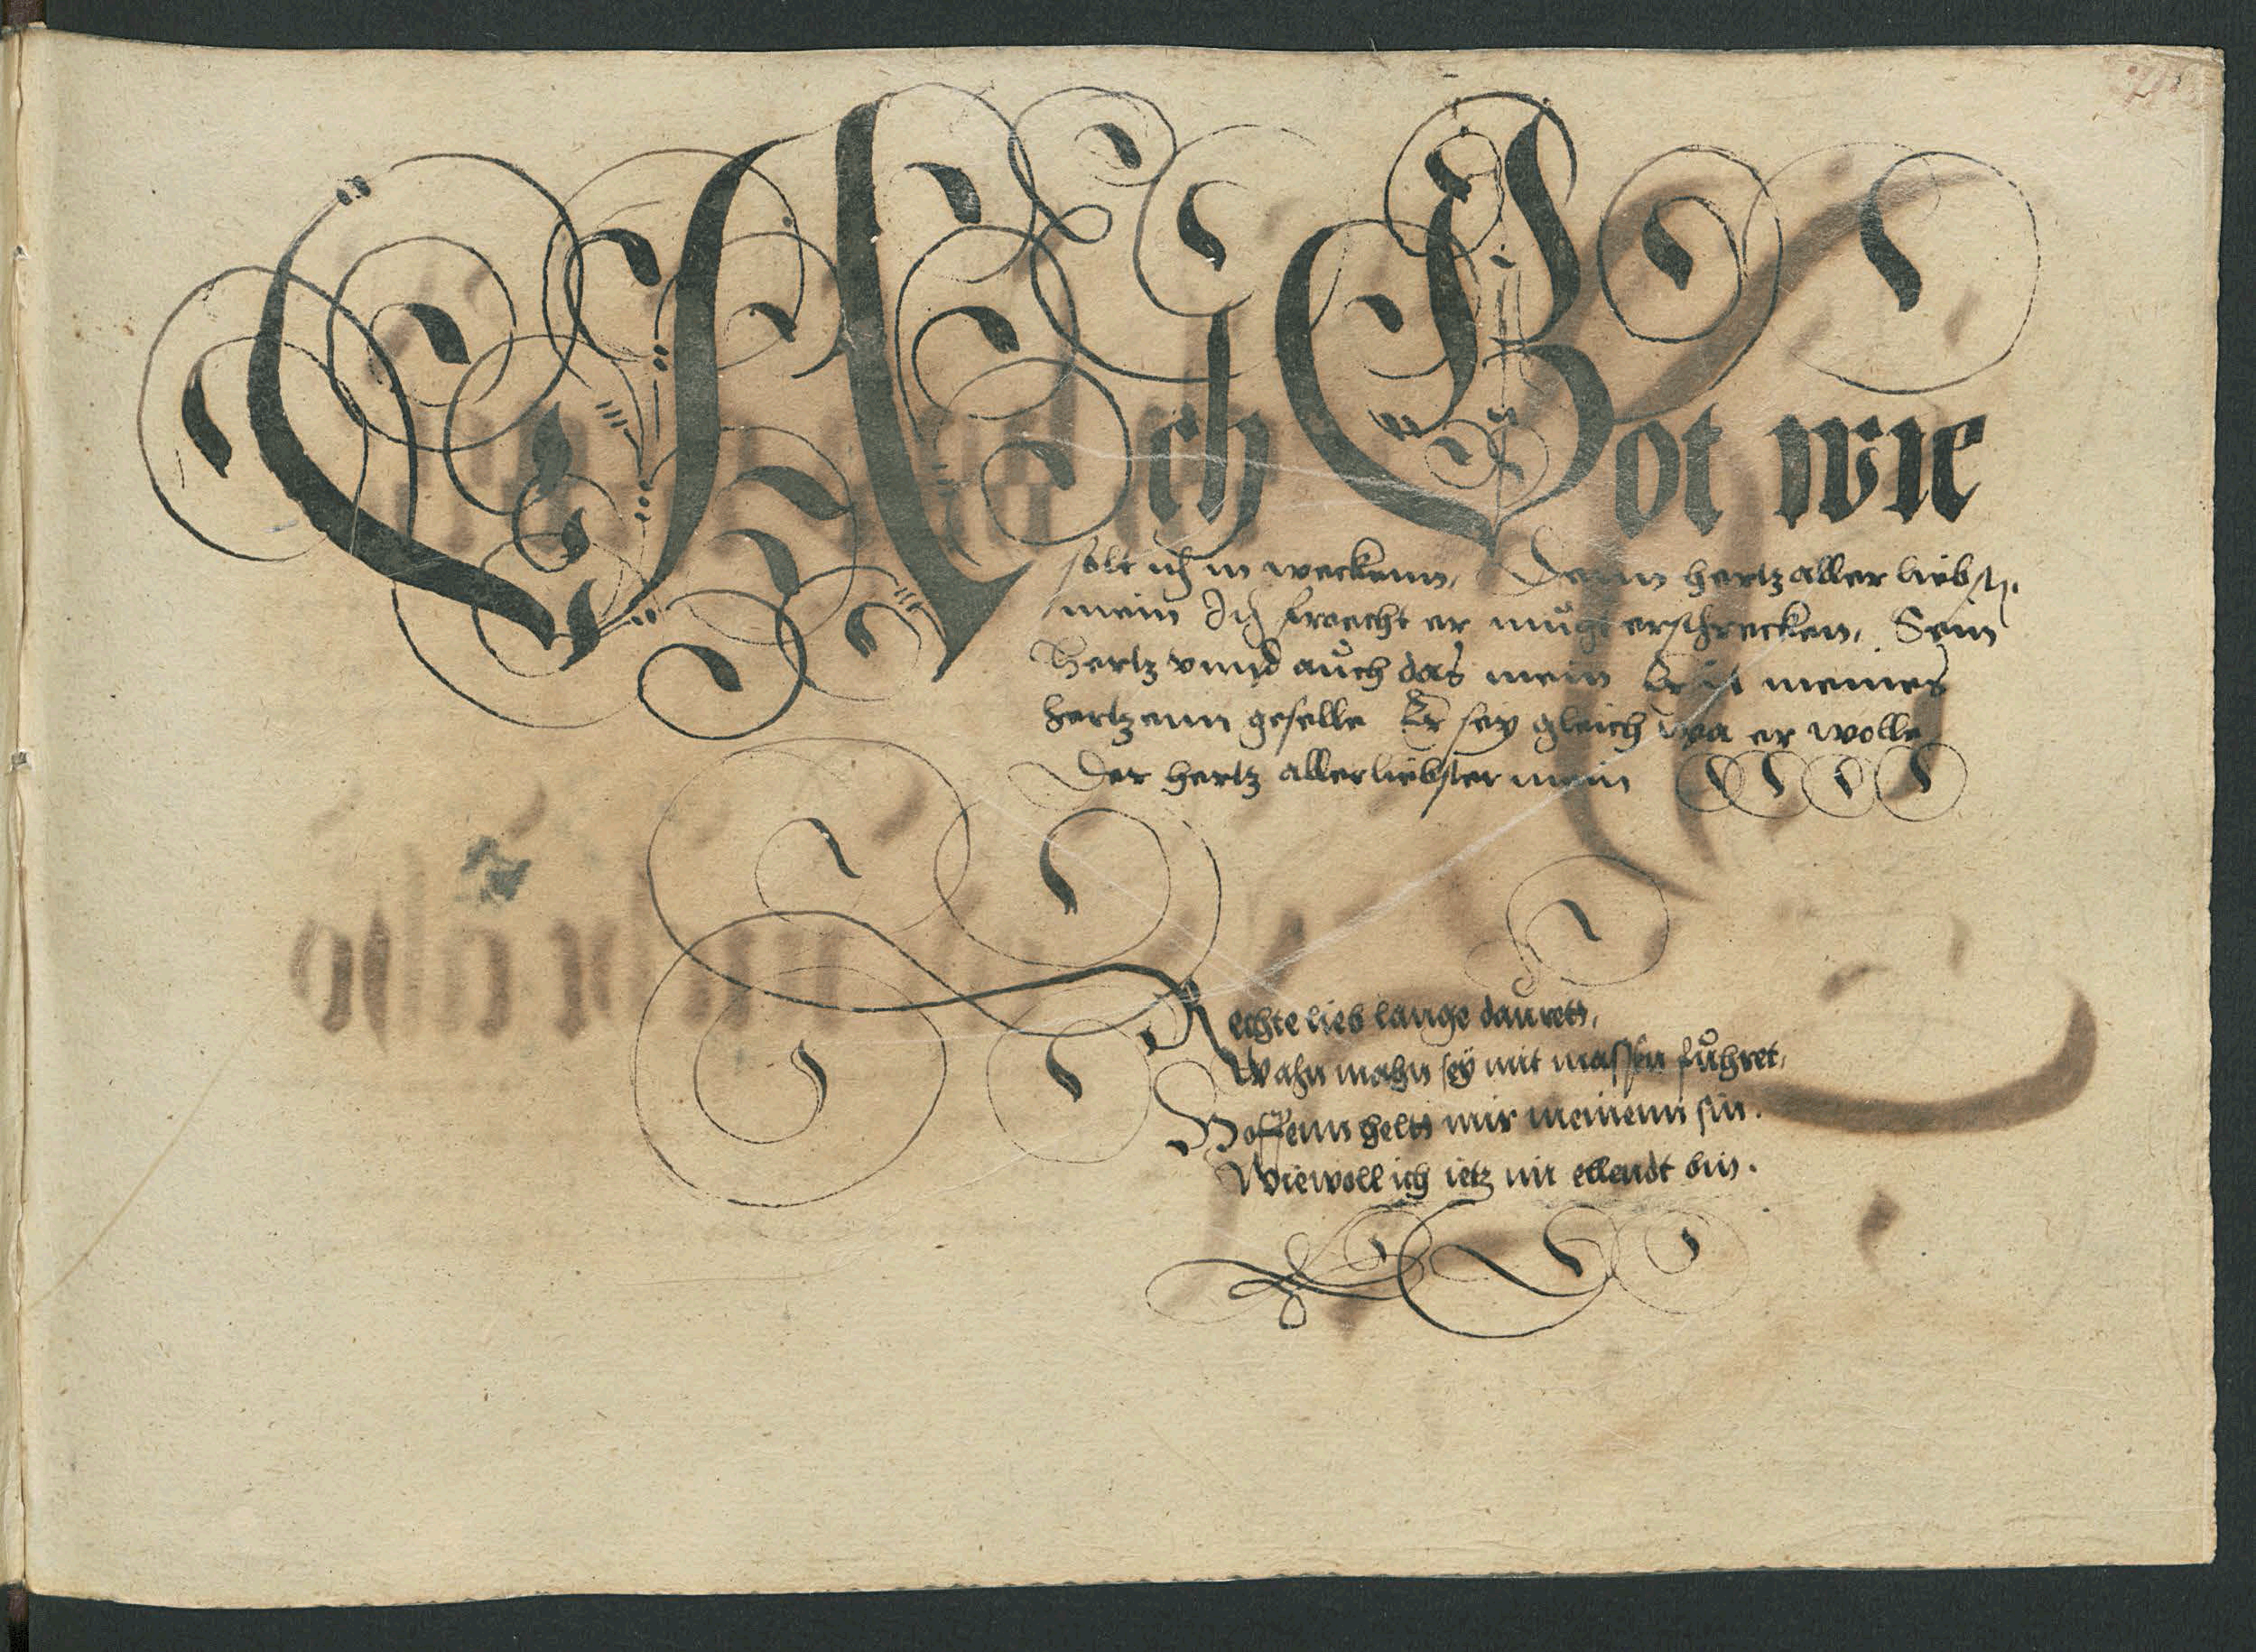 Ach Got wie
solt ich in weckenn, Denn hertz aller liebst.
mein Ich fruecht er můgt erschrecken, Sein
Hertz vnnd aůch das mein Er ist meines
hertzenn geselle Er sey gleich wa er wolle
Der hertz allerliebster mein
Rechte lieb lange daůrett,
Wahn mahn sey mit massen fůhret,
Hoffenn helt mir meinenn sin.
Wiewoll ich ietz im ellendt bin.